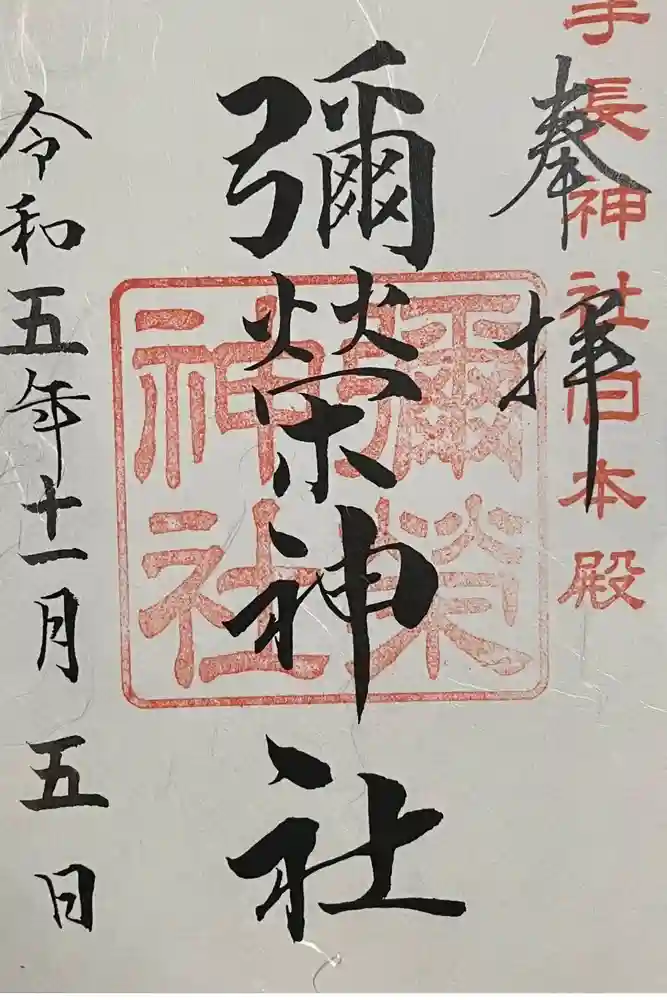 手長神社旧本殿
奉拝
彌榮神社
彌榮
神社
令和五年十一月五日